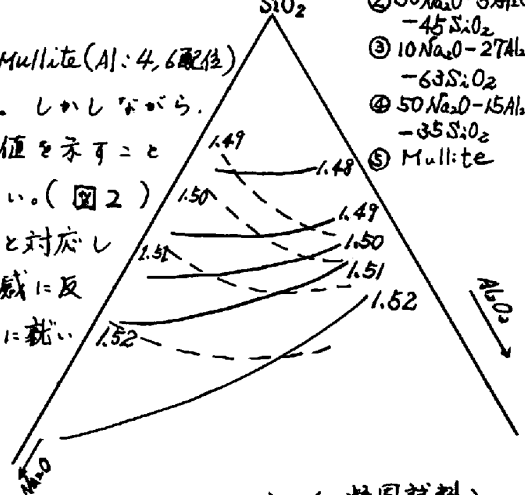 SiO₂
② 50Na₂O-5Al₂O
-45SiO₂
③ 10Na₂O-27Al₂
-63SiO₂
④ 50Na₂O-15Al₂
-35SiO₂
⑤ Mullite
Mullite(Al:4,6配位)
。しかしながら、
値を示すこと
い。(図2)
と対応し
感に反
に就い
1.49
1.48
1.50
1.49
1.50
1.51
1.51
1.52
1.52
Al₂O₃
Na₂O